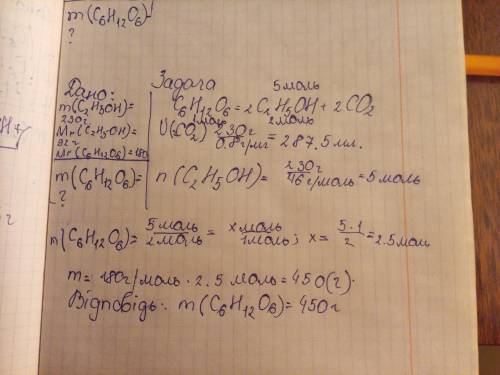 m(C₆H₁₂O₆)
?
Дано:
m(C₂H₅OH)=
230г
Mr(C₂H₅OH)=
92г
Mr(C₆H₁₂O₆)=180
m(C₆H₁₂O₆)=
?
Задача
5моль
C₆H₁₂O₆=2C₂H₅OH+2CO₂
1моль 2моль
V(CO₂) 230г/0.8г/мл = 287.5мл.
n(C₂H₅OH)= 230г/46г/моль =5моль
n(C₆H₁₂O₆)= 5моль/2моль = xмоль/1моль; x= 5·1/2 =2.5мол
m=180г/моль·2.5моль=450(г).
Відповідь: m(C₆H₁₂O₆)=450г